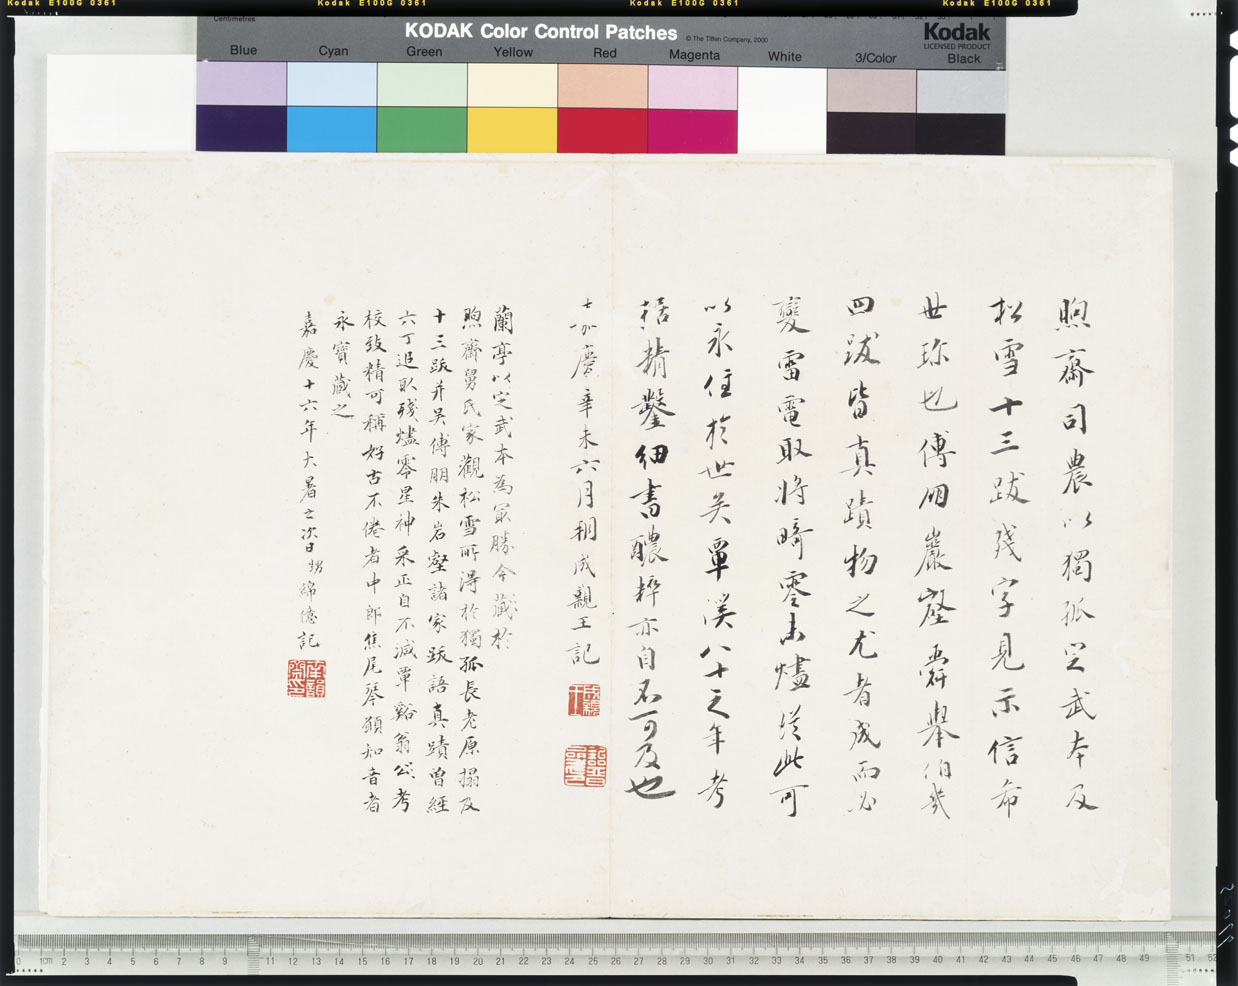 Kodak E100G 0361
Kodak E100G 0361
Kodak E100G 0361
Kodak E100G 0361
Centimetres
KODAK Color Control Patches
© The Tiffen Company, 2000
Kodak
LICENSED PRODUCT
Blue Cyan Green Yellow Red Magenta White 3/Color Black
煦齋司農以獨孤定武本及
松雪十三跋殘字見示信希
世珍也傅朋巖壑舜舉伯幾
四跋皆真蹟物之尤者成而必
變雷電取將畸零未燼從此可
以永住於世矣覃溪八十之年考
據精鑿細書醲粹亦自不可及也
嘉慶辛未六月朔成親王記
成親王
詒晉齋印
蘭亭以定武本為最勝今藏於
煦齋舅氏家觀松雪所得於獨孤長老原搨及
十三跋并吳傅朋朱岩壑諸家跋語真蹟曾經
六丁追取殘燼零星神采正自不減覃谿翁公考
校致精可稱好古不倦者中郎焦尾琴願知音者
永寶藏之
嘉慶十六年大暑之次日甥綿億記
南韻齋印
0 1cm 2 3 4 5 6 7 8 9 11 12 13 14 15 16 17 18 19 20 21 22 23 24 25 26 27 28 29 30 31 32 33 34 35 36 37 38 39 40 41 42 43 44 45 46 47 48 49 51 52